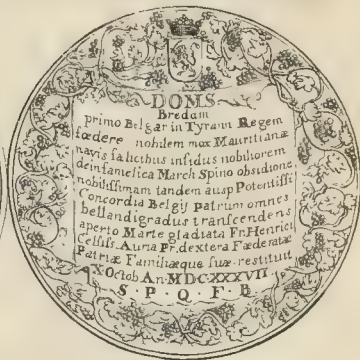 DOMS
Bredam
primo Belgar in Tyrann Regem
fœdere nobilem mox Mauritianæ
navis salicibus insidus nobiliorem
deinfamelica March Spino obsidione
nobilissimam tandem ausp Potentissi
Concordia Belgij patrum omnes
bellandi gradus transcendens
aperto Marte gladiata Fr: Henrici
Celsiss. Auria Pr. dextera Fæderatæ
Patriæ Familiæque suæ restituit
X Octob An MDCXXXVII
S·P·Q·F·B